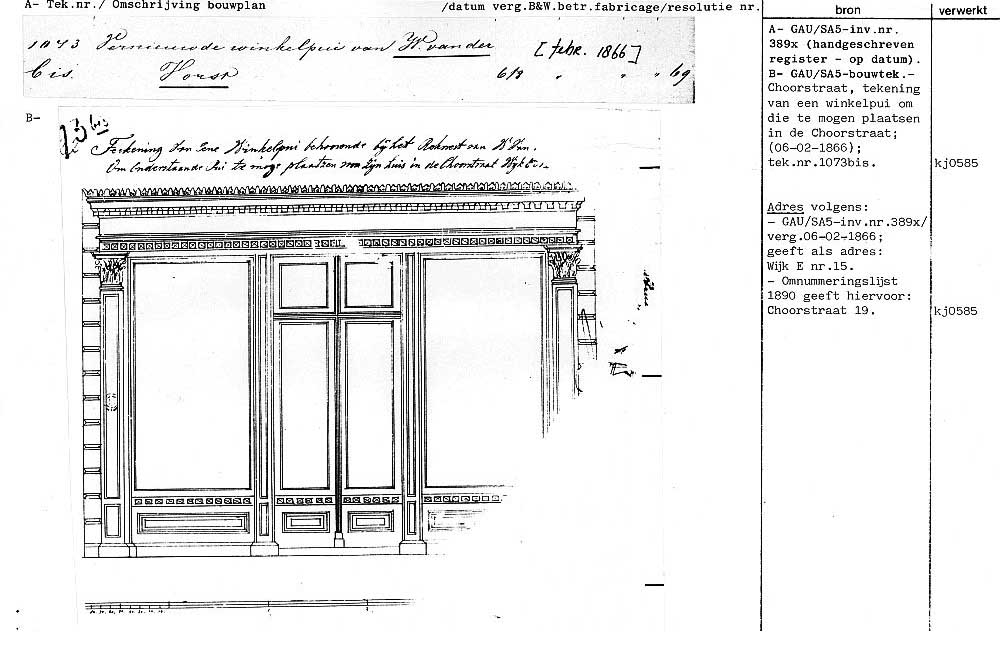 A- Tek.nr./ Omschrijving bouwplan /datum verg.B&W.betr.fabricage/resolutie nr.
bron verwerkt
1073 Vernieuwde winkelpui van W. van der [febr. 1866]
bis. Horst 6/2 " " " 69
B-
73 bis
Teekening van Eene Winkelpui behoorende bij het Rekwest van W Van
Om Onderstaande Pui te moge plaatsen voor Zijn huis in de Choorstraat Wijk E
A- GAU/SA5-inv.nr.
389x (handgeschreven
register - op datum).
B- GAU/SA5-bouwtek.-
Choorstraat, tekening
van een winkelpui om
die te mogen plaatsen
in de Choorstraat;
(06-02-1866);
tek.nr.1073bis. kj0585
Adres volgens:
- GAU/SA5-inv.nr.389x/
verg.06-02-1866;
geeft als adres:
Wijk E nr.15.
- Omnummeringslijst
1890 geeft hiervoor:
Choorstraat 19. kj0585